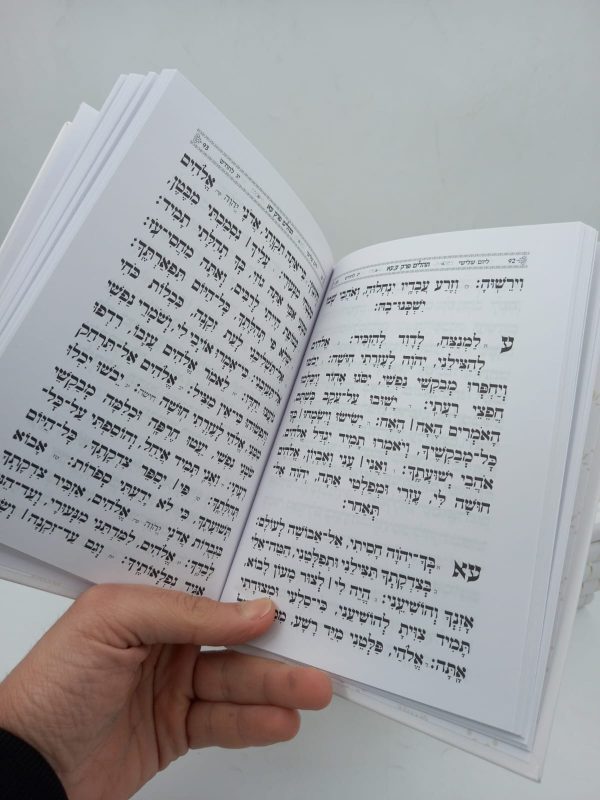 92 ליום שלישי תהלים פרק
וְיִרֵשׁוּהָ: וְזֶרַע עֲבָדָיו יִנְחָלוּהָ, וְאֹהֲבֵי
יִשְׁכְּנוּ־בָהּ:
ע לַמְנַצֵּחַ, לְדָוִד לְהַזְכִּיר: אֱלֹהִים
לְהַצִּילֵנִי, יְהֹוָה לְעֶזְרָתִי חוּשָׁה: יֵבֹשׁוּ
וְיַחְפְּרוּ מְבַקְשֵׁי נַפְשִׁי, יִסֹּגוּ אָחוֹר וְיִכָּלְמוּ
חֲפֵצֵי רָעָתִי: יָשׁוּבוּ עַל־עֵקֶב בָּשְׁתָּם,
הָאֹמְרִים הֶאָח | הֶאָח: יָשִׂישׂוּ וְיִשְׂמְחוּ | בְּךָ
כָּל־מְבַקְשֶׁיךָ, וְיֹאמְרוּ תָמִיד יִגְדַּל אֱלֹהִים,
אֹהֲבֵי יְשׁוּעָתֶךָ: וַאֲנִי | עָנִי וְאֶבְיוֹן אֱלֹהִים,
חוּשָׁה לִּי, עֶזְרִי וּמְפַלְטִי אַתָּה, יְהֹוָה אַל־
תְּאַחַר:
עא בְּךָ־יְהֹוָה חָסִיתִי, אַל־אֵבוֹשָׁה לְעוֹלָם:
בְּצִדְקָתְךָ תַּצִּילֵנִי וּתְפַלְּטֵנִי, הַטֵּה־אֵלַי
אָזְנְךָ וְהוֹשִׁיעֵנִי: הֱיֵה לִי | לְצוּר מָעוֹן לָבוֹא,
תָּמִיד צִוִּיתָ לְהוֹשִׁיעֵנִי, כִּי־סַלְעִי וּמְצוּדָתִי
אָתָּה: אֱלֹהַי, פַּלְּטֵנִי מִיַּד רָשָׁע,
תהלים פרק עא יג לחודש 93
כִּי־אַתָּה תִקְוָתִי, אֲדֹנָי יֱהֹוִה אֱלֹהִים
עָלֶיךָ | נִסְמַכְתִּי מִבֶּטֶן,
אַתָּה גוֹזִי, בְּךָ תְהִלָּתִי תָמִיד:
הָיִיתִי לְרַבִּים, וְאַתָּה מַחֲסִי־עֹז:
פִּי תְּהִלָּתֶךָ, כָּל־הַיּוֹם תִּפְאַרְתֶּךָ:
תַּשְׁלִיכֵנִי לְעֵת זִקְנָה, כִּכְלוֹת כֹּחִי
כִּי־אָמְרוּ אוֹיְבַי לִי, וְשֹׁמְרֵי נַפְשִׁי
יַחְדָּו: לֵאמֹר אֱלֹהִים עֲזָבוֹ, רִדְפוּ
כִּי־אֵין מַצִּיל: אֱלֹהִים אַל־תִּרְחַק
מִמֶּנִּי, אֱלֹהַי לְעֶזְרָתִי חוּשָׁה: יֵבֹשׁוּ יִכְלוּ
שֹׂטְנֵי נַפְשִׁי, יַעֲטוּ חֶרְפָּה וּכְלִמָּה מְבַקְשֵׁי
רָעָתִי: וַאֲנִי תָּמִיד אֲיַחֵל, וְהוֹסַפְתִּי עַל־כָּל־
תְּהִלָּתֶךָ: פִּי | יְסַפֵּר צִדְקָתֶךָ, כָּל־הַיּוֹם
תְּשׁוּעָתֶךָ, כִּי לֹא יָדַעְתִּי סְפֹרוֹת: אָבוֹא
בִּגְבֻרוֹת אֲדֹנָי יֱהֹוִה, אַזְכִּיר צִדְקָתְךָ
לְבַדֶּךָ: אֱלֹהִים, לִמַּדְתַּנִי מִנְּעוּרָי וְעַד־הֵנָּה
אַגִּיד נִפְלְאוֹתֶיךָ: וְגַם עַד־זִקְנָה |